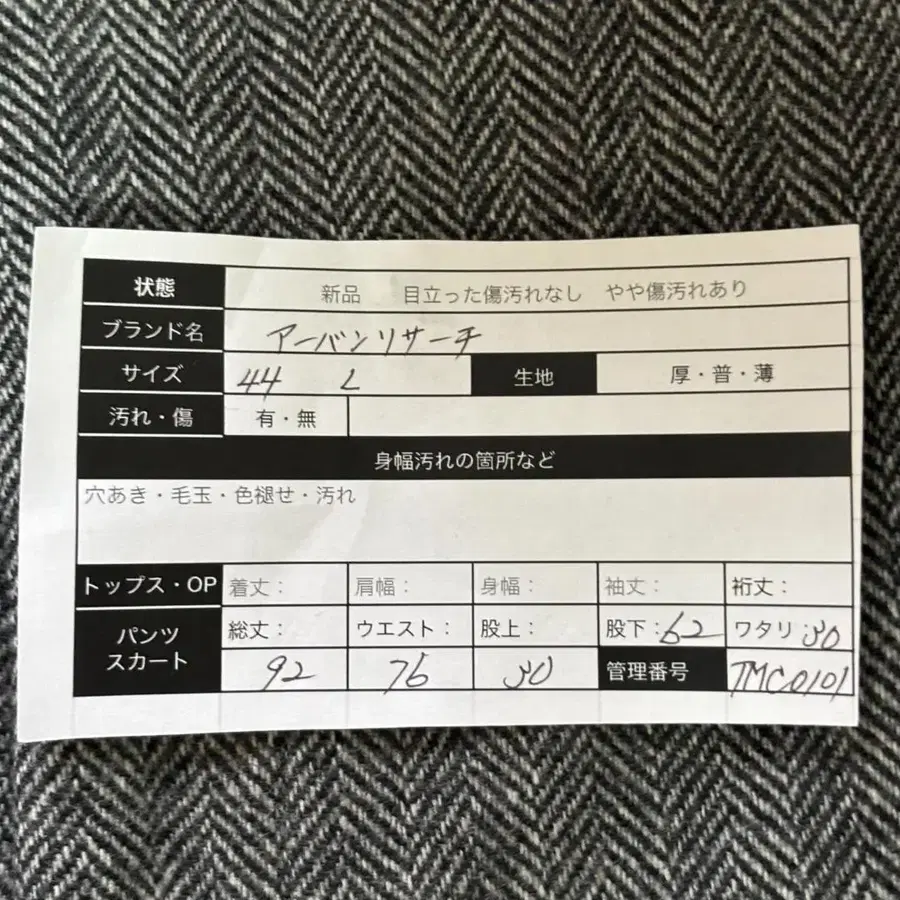 状態 新品 目立った傷汚れなし やや傷汚れあり
ブランド名 アーバンリサーチ
サイズ 44 L 生地 厚・普・薄
汚れ・傷 有・無
身幅汚れの箇所など
穴あき・毛玉・色褪せ・汚れ
トップス・OP 着丈: 肩幅: 身幅: 袖丈: 裄丈:
パンツ スカート 総丈: ウエスト: 股上: 股下:62 ワタリ:30
92 76 30 管理番号 TMC0101